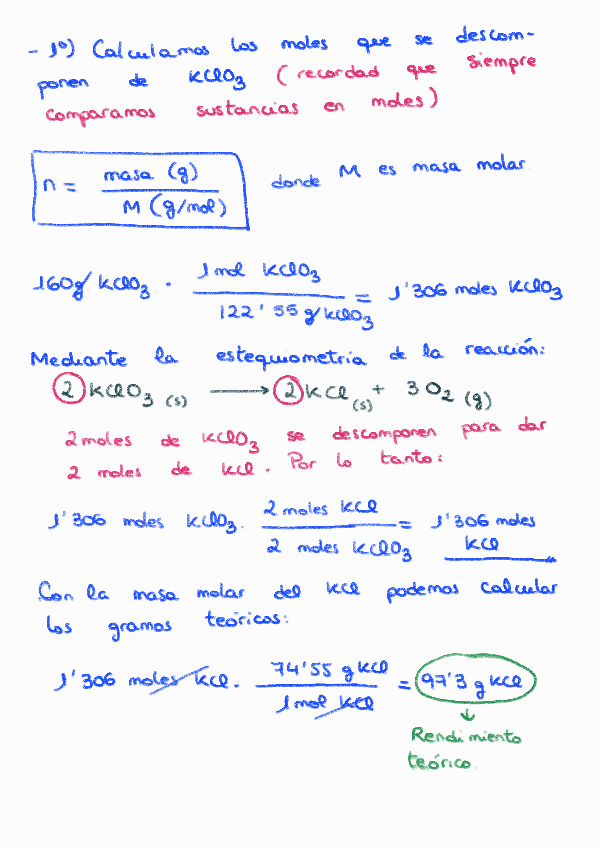 - 1º) Calculamos los moles que se descom-
ponen de KClO3 (recordad que siempre
comparamos sustancias en moles)
n = masa (g) / M (g/mol) donde M es masa molar
160g KClO3 · 1 mol KClO3 / 122'55 g KClO3 = 1'306 moles KClO3
Mediante la estequiometria de la reacción:
2 KClO3 (s) → 2 KCl (s) + 3 O2 (g)
2 moles de KClO3 se descomponen para dar
2 moles de KCl. Por lo tanto:
1'306 moles KClO3 · 2 moles KCl / 2 moles KClO3 = 1'306 moles KCl
Con la masa molar del KCl podemos calcular
los gramos teóricos:
1'306 moles KCl · 74'55 g KCl / 1 mol KCl = 97'3 g KCl
↓
Rendimiento
teórico.